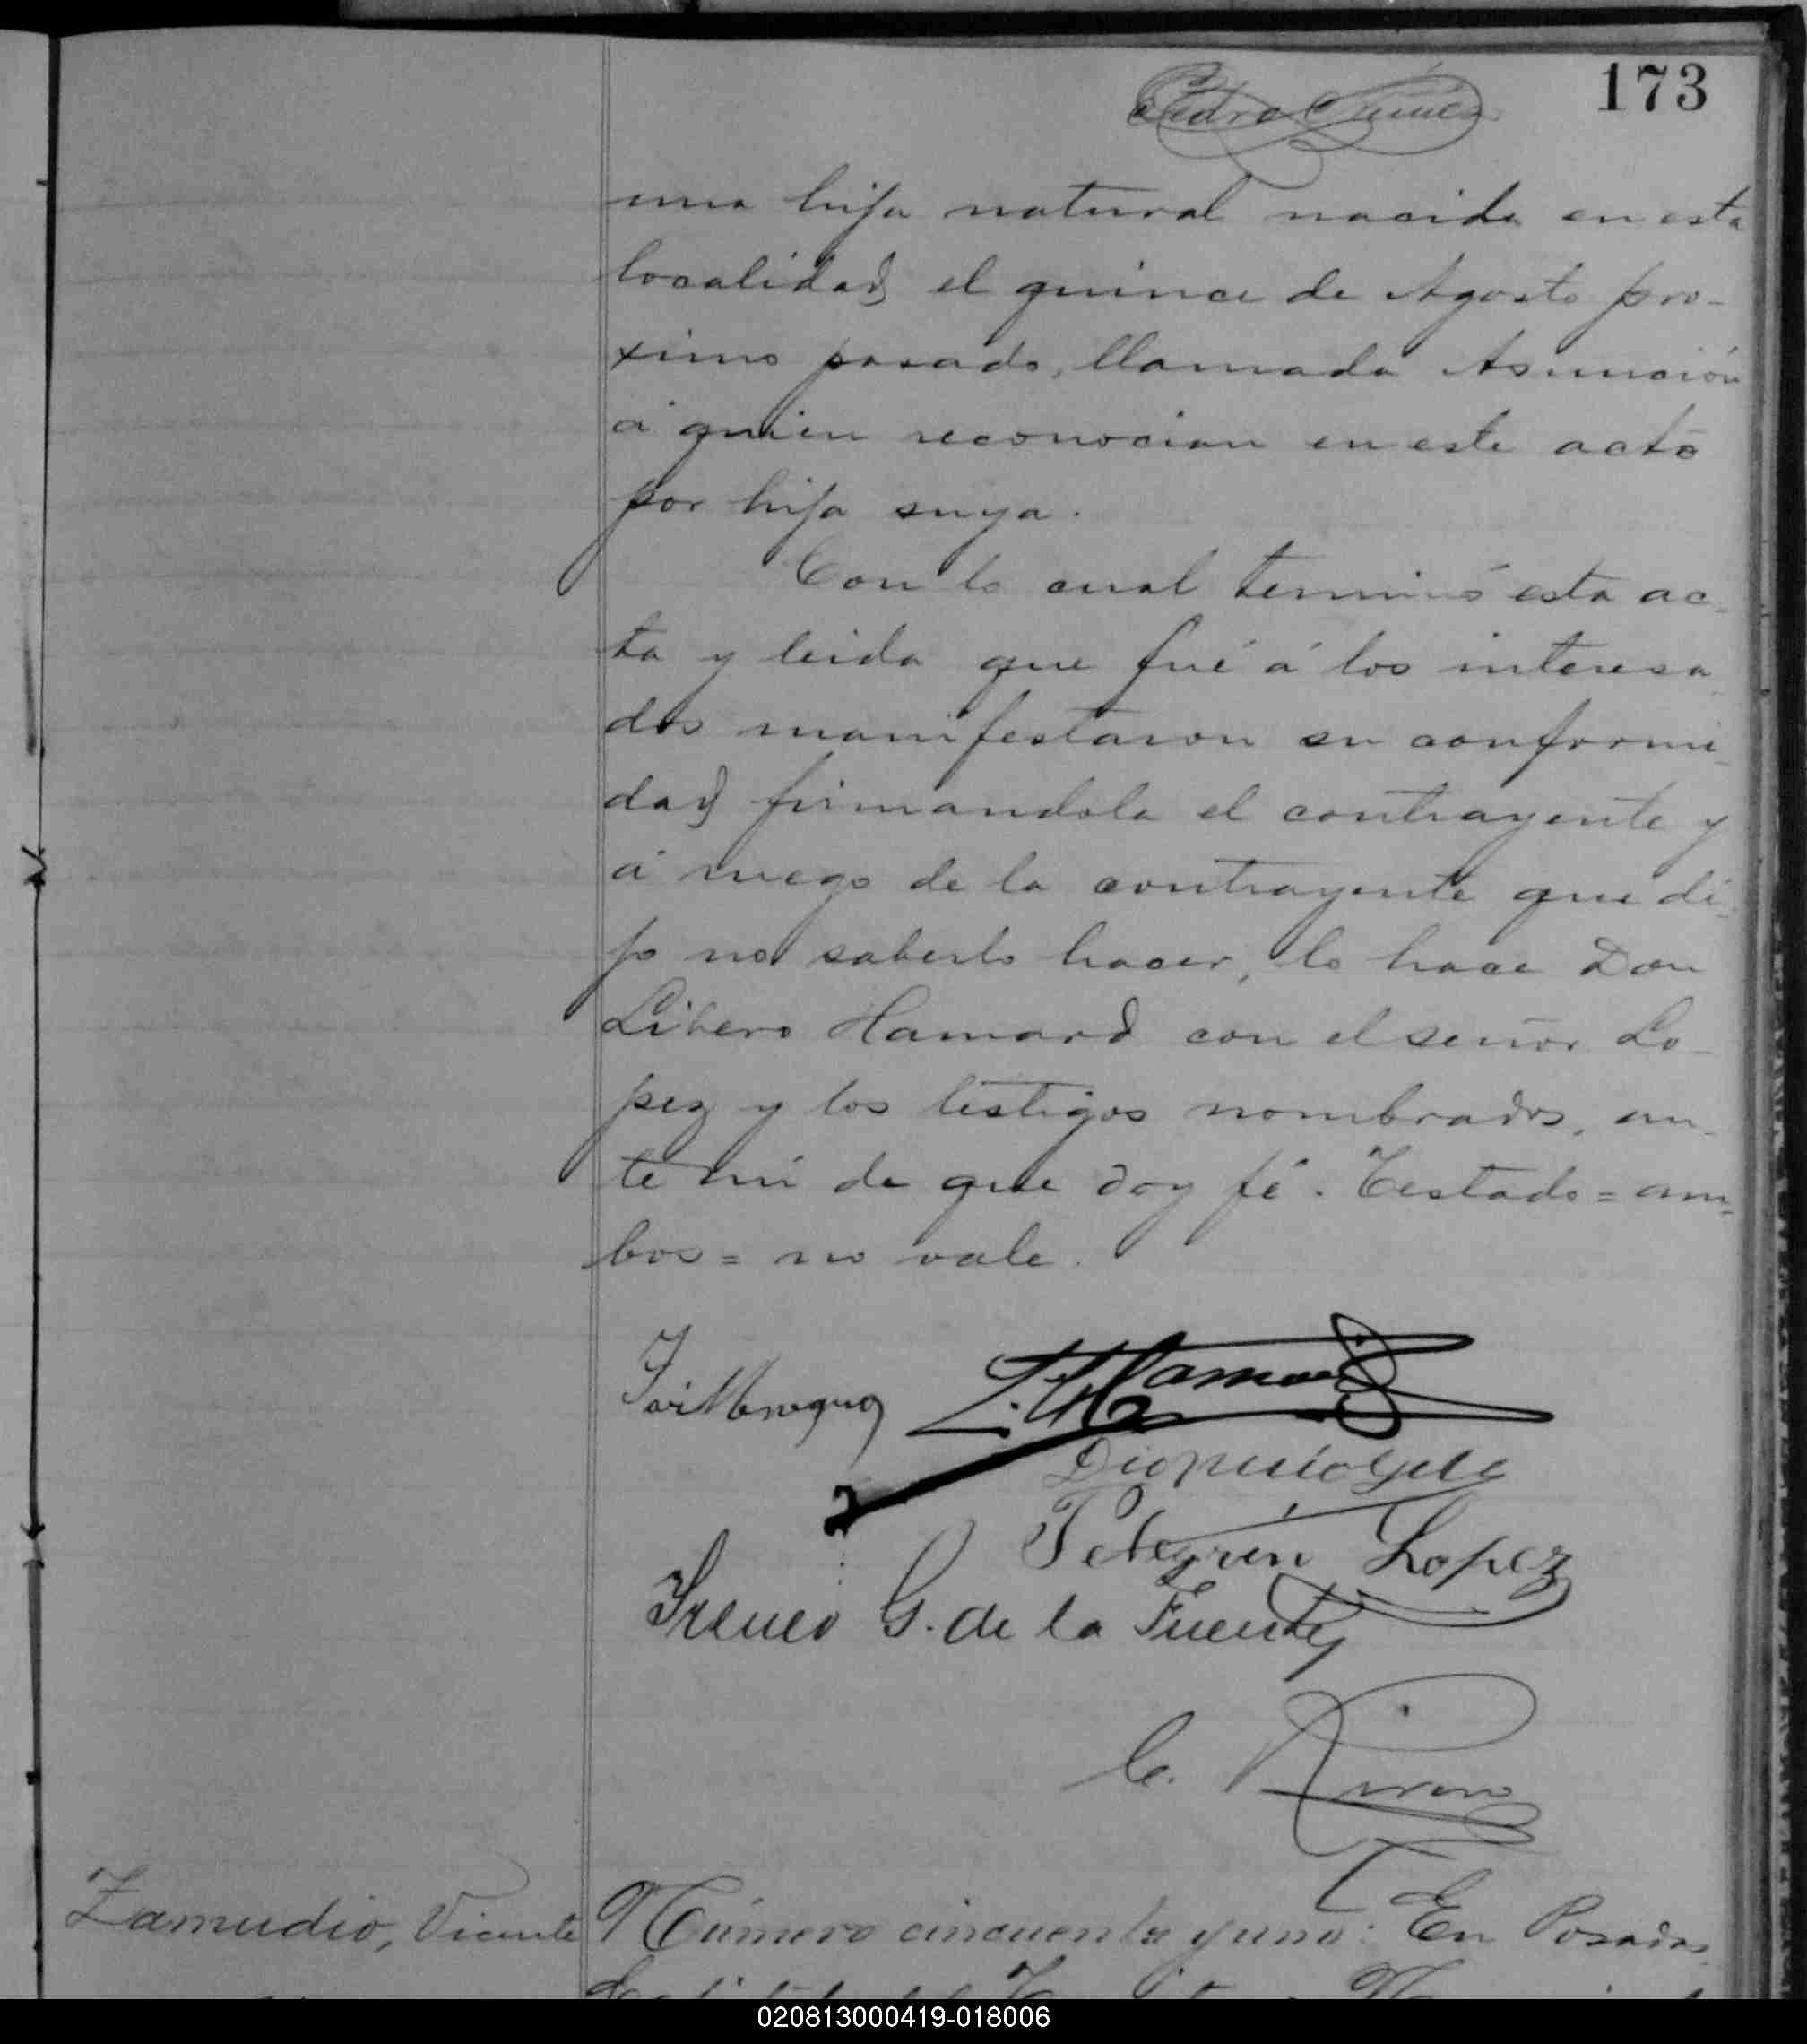 173
Pedro Nuñez
una hija natural nacida en esta
localidad el quince de Agosto pro-
ximo pasado, llamada Asunción
á quien reconocian en este acto
por hija suya.
Con lo cual terminó esta ac-
ta y leida que fué á los interesa-
dos manifestaron su conformi-
dad firmandola el contrayente y
á ruego de la contrayente que di-
jo no saberlo hacer, lo hace Don
Libero Hamard con el señor Lo-
pez y los testigos nombrados, an-
te mi de que doy fé. Testado = am-
bos = no vale.
L. Hamard
Pelegrin Lopez
Ireneo G. de la Fuente
C.
Zamudio, Vicente
Número cincuenta y uno: En Posadas
020813000419-018006